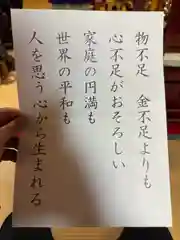 物不足　金不足よりも
心不足がおそろしい
家庭の円満も
世界の平和も
人を思う心から生まれる